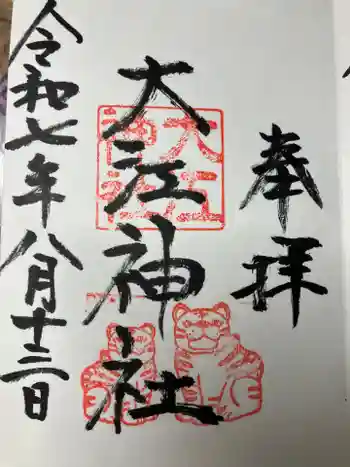 奉拝
大江神社
令和七年八月十三日
大江神社